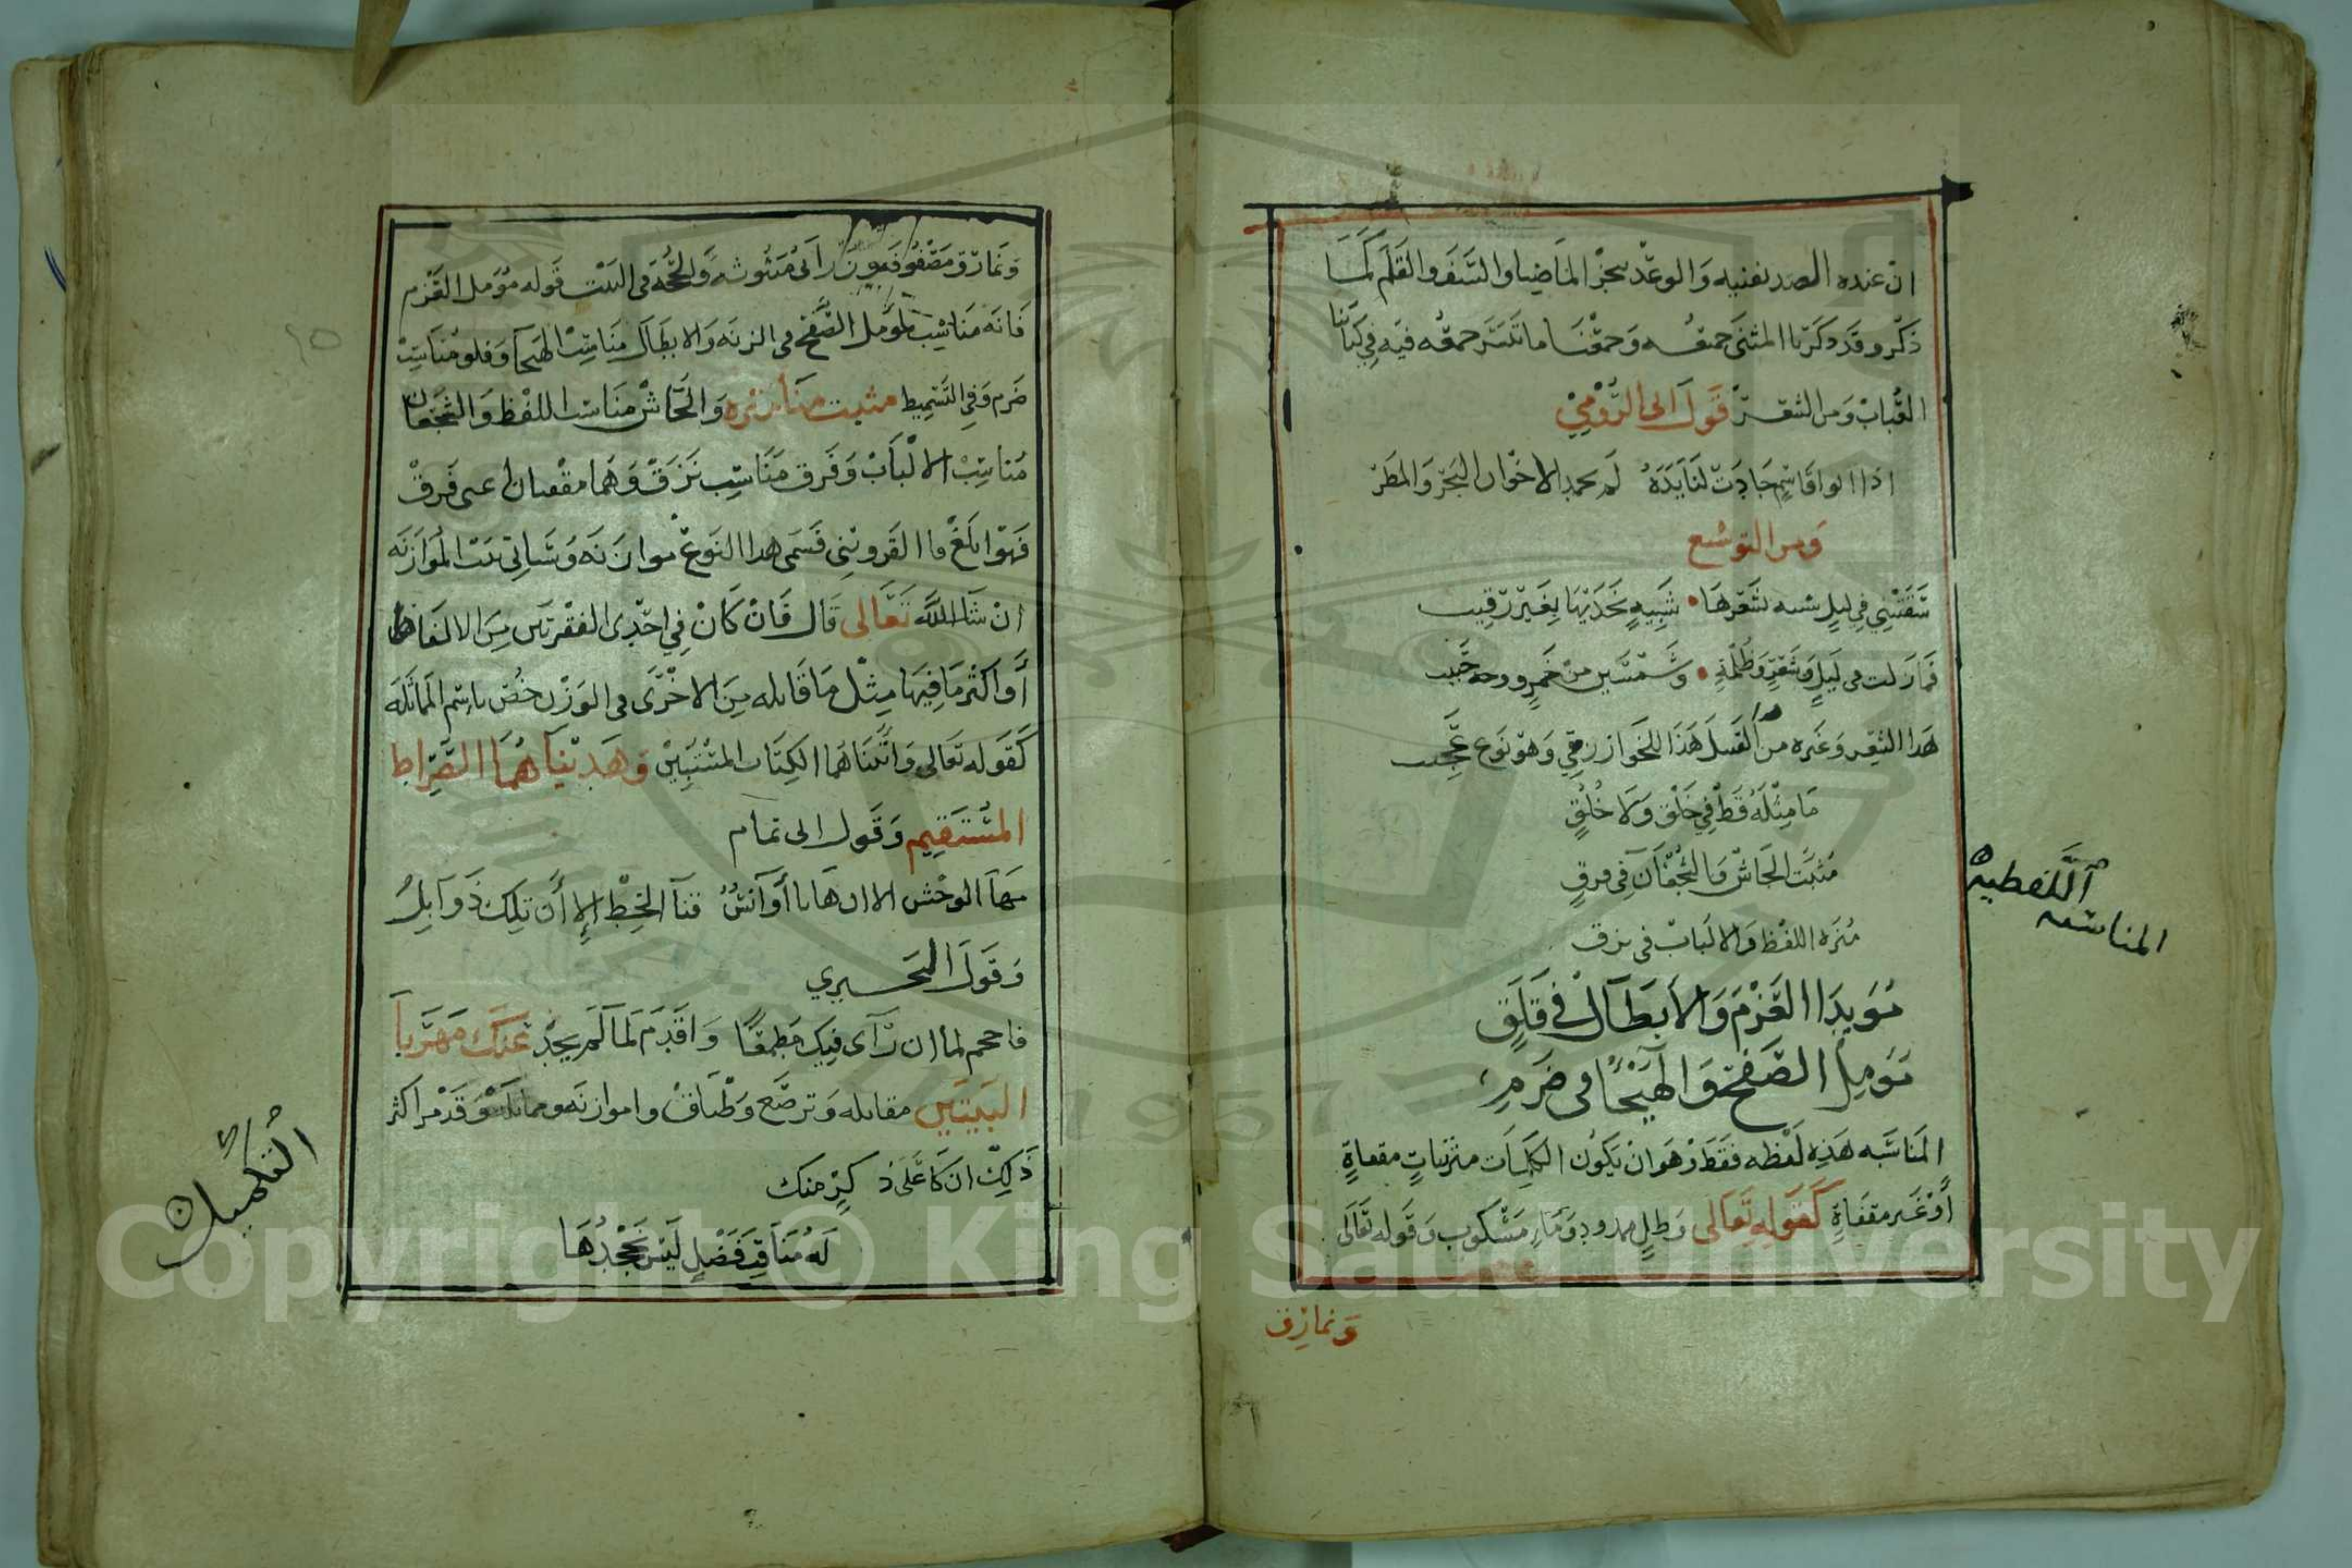 ان عنده الصدر نفنيه والوعد ينجز الماضيا والسقر والقلم كما
ذكر وقد ذكرنا المثنى جمعه وجمعنا ما تيسر جمعه فيه في كتابنا
العباب ومن الشعر قول ابن الرومي
اذا ابو قاسم جادت لنا يده لم يحمد الاخوان البحر والمطر
ومن التوشيع
شفتني في ليل شبه شعرها شبيه خديها بغير رقيب
فما زلت في ليل وشعر وظلمة وشمسين من خمر ووجه حبيب
هذا الشعر وغيره من القسل هذا للخوارزمي وهو نوع عجيب
ما مثله قط في خلق ولا خلق
مثبت الجاش والشجعان في فرق
منزه اللفظ والالباب في نزق
مويد العزم والابطال في قلق
مومل الصفح والهيجا في ضرم
المناسبه هذه لفظه فقط وهو ان يكون الكلمات متزنات مقفاة
او غير مقفاة كقوله تعالى وظل ممدود وماء مسكوب وقوله تعالى
ونمارق
اللفظيه
المناسبه
ونمارق مصفوفه وزرابي مبثوثه والحجه في البيت قوله مومل العزم
فانه مناسب لمومل الصفح في الزنه والابطال مناسب الهيجا وقلق مناسب
ضرم وفي التسميط مثبت منا نزه والجاش مناسب اللفظ والشجعان
مناسب الالباب وفرق مناسب نزق وهما مقفيان اعني فرق
فهو ابلغ واما القزويني فسمى هذا النوع موازنه وسياتي بيت الموازنه
ان شا الله تعالى قال فان كان في احدى الفقرتين من الالفاظ
أو اكثر ما فيها مثل ما قابله من الاخرى في الوزن خص باسم المماثله
كقوله تعالى واتيناهما الكتاب المستبين وهديناهما الصراط
المستقيم وقول ابي تمام
مها الوحش الا ان هاتا أوانس قنا الخط إلا أن تلك ذوابل
وقول البحتري
فاحجم لما ان رآى فيك مطمعا واقدم لما لم يجد عنك مهربا
البيتين مقابله وترصع وطباق وموازنه ومماثله وقد مر اكثر
ذلك ان كا على ذكر منك
له مناقب فضل ليس نجحدها
التكميل
Copyright © King Saud University
1957